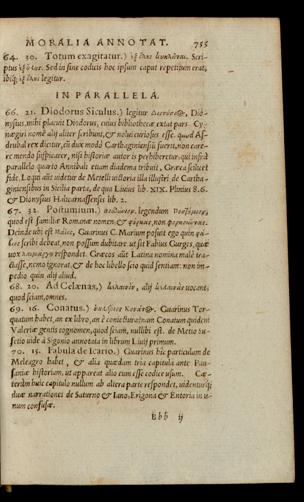 MORALIA ANNOTAT. 755
64. 30. Totum exagitatur.) Scri-
ptus Sed in fine codicis hoc ipsum caput repetitum erat,
legitur.
IN PARALLELA.
66. 21. Diodorus Siculus.) legitur Dio-
nysius. mihi placuit Diodorus, cuius bibliothecæ extat pars. Cy-
negiri nomē alij aliter scribunt, & nolui curiosus esse. quod As-
drubal rex dicitur, cū dux modò Carthaginensiū fuerit, non care-
re mendo suspicarer, nisi historiæ autor is perhiberetur. qui infrà
parallelo quarto Annibali etiam diadema tribuit, Græca scilicet
fide. L. qui aūt videtur de Metelli victoria illa illustri de Cartha-
ginensibus in Sicilia parta, de qua Liuius lib. XIX. Plinius 8.6.
& Dionysius Halicarnassensis lib. 2.
67. 32. Postumium.) legendum
quod est familiæ Romanæ nomen, &
Deinde ubi est Guarinus C. Marium posuit ego quin
scribi debeat, non possum dubitare ut sit Fabius Gurges, quæ
vox respondet. Græcos aūt Latina nomina malè tra-
ctasse, nemo ignorat, & de hoc libello scio quid sentiam: non im-
pedio quin alij aliud.
68. 20. Ad Celænas,) alij uocant:
quod sciam, omnes.
69. 16. Conatus.) Guarinus Tor-
quatum habet, an ex libro, an è coniectura: nam Conatum quidem
Valeriæ gentis cognomen, quod sciam, nullibi est. de Metio Suf-
fetio uide à Sigonio annotata in librum Liuij primum.
70. 15. Fabula de Icario.) Guarinus hîc particulam de
Meleagro habet, & alia quædam tria capitula ante Pau-
saniæ historiam. ut appareat alio eum esse codice usum. Cæ-
terùm huic capitulo nullum ab altera parte respondet, uidenturq;
duæ narrationes de Saturno & Iano, Erigona & Entoria in u-
num confusæ.
Bbb ij